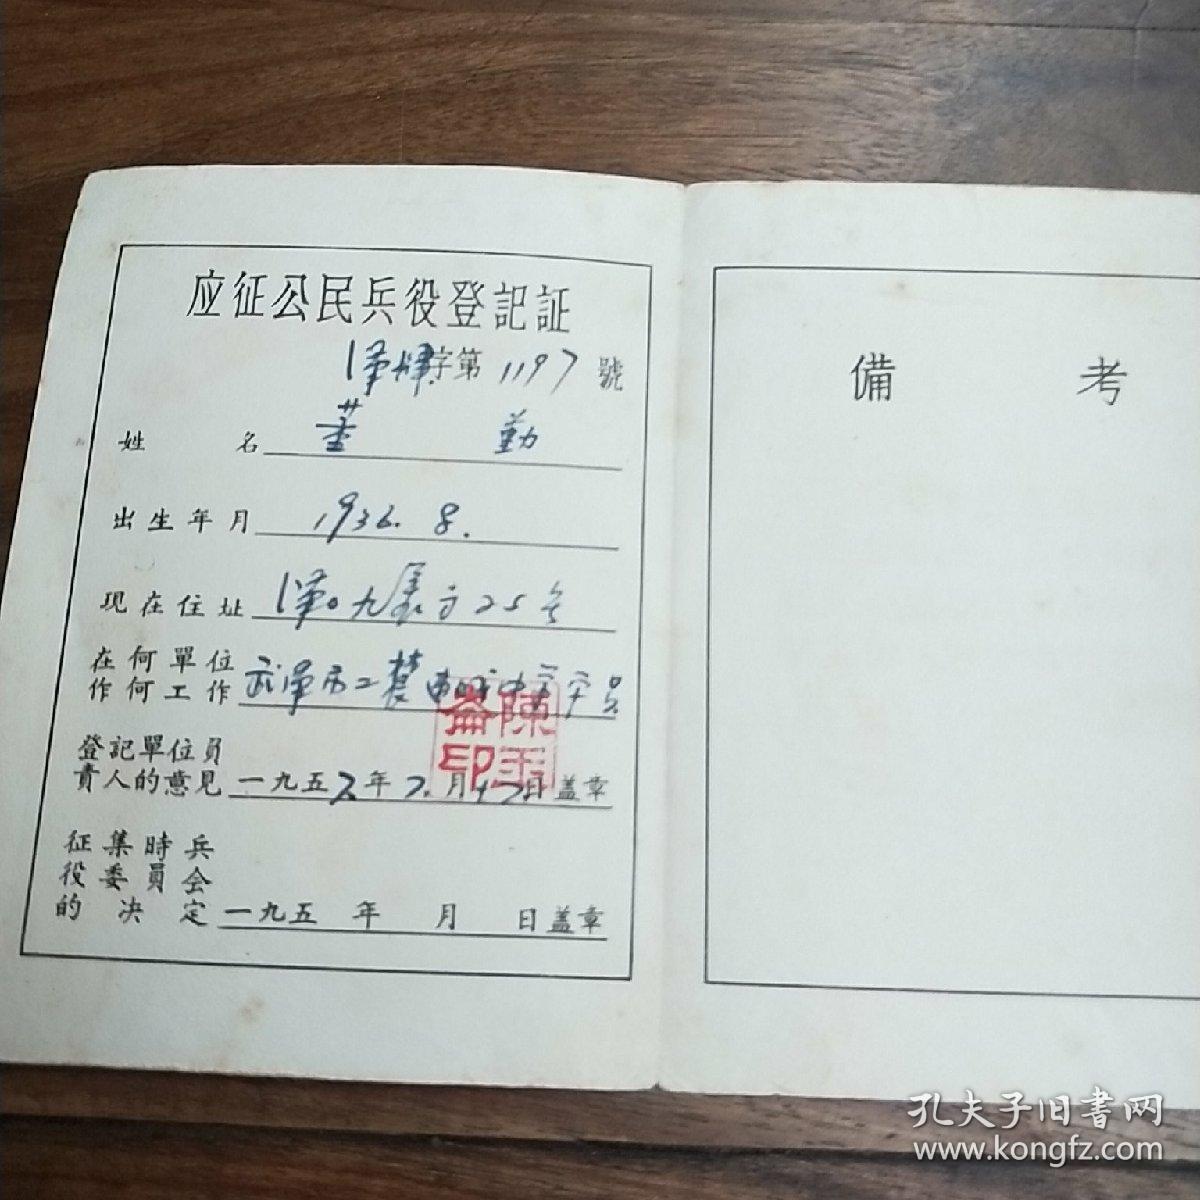 应征公民兵役登記証
字第1197號
姓名 董勤
出生年月 1936.8.
現在住址 漢口九 25号
在何單位
作何工作 武漢市工農 中学 学員
登記單位負
責人的意見 一九五 年 2.月 十 日盖章
陳玉崙印
征集時兵
役委員会
的决定 一九五 年 月 日盖章
備考
孔夫子旧書网
www.kongfz.com